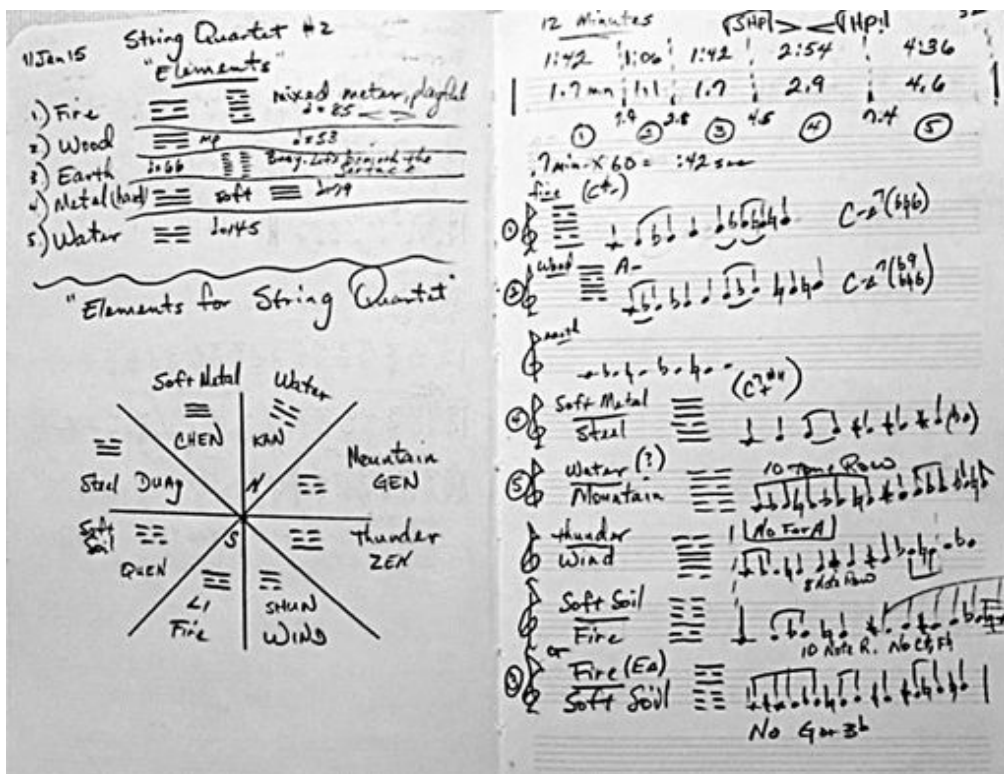 11 Jan 15
String Quartet #2
"Elements"
1.) Fire mixed meter, playful
♩=85
2.) Wood mp ♩=53
3.) Earth ♩=66 Busy. Lots beneath the surface
4.) Metal (hard) soft ♩=79
5.) Water ♩=145
"Elements for String Quartet"
Soft Metal
CHEN
Water
KAN
Mountain
GEN
N
Steel
S
Thunder
ZEN
Soft Soil
QUEN
LI
Fire
SHUN
WIND
12 Minutes
1:42 1:06 1:42 2:54 4:36
1.7 mn 1.1 1.7 2.9 4.6
① ② ③ ④ ⑤
2.8 4.5 7.4
.7 min x 60 = :42 sec
① fire
② Wood A-
earth
④ Soft Metal
Steel
⑤ Water (?)
Mountain
10-Tone Row
No F or A
thunder
Wind
8 Note Row
Soft Soil
Fire
10 Note R. No C#, F#
or
Fire
Soft Soil
No G or Bb